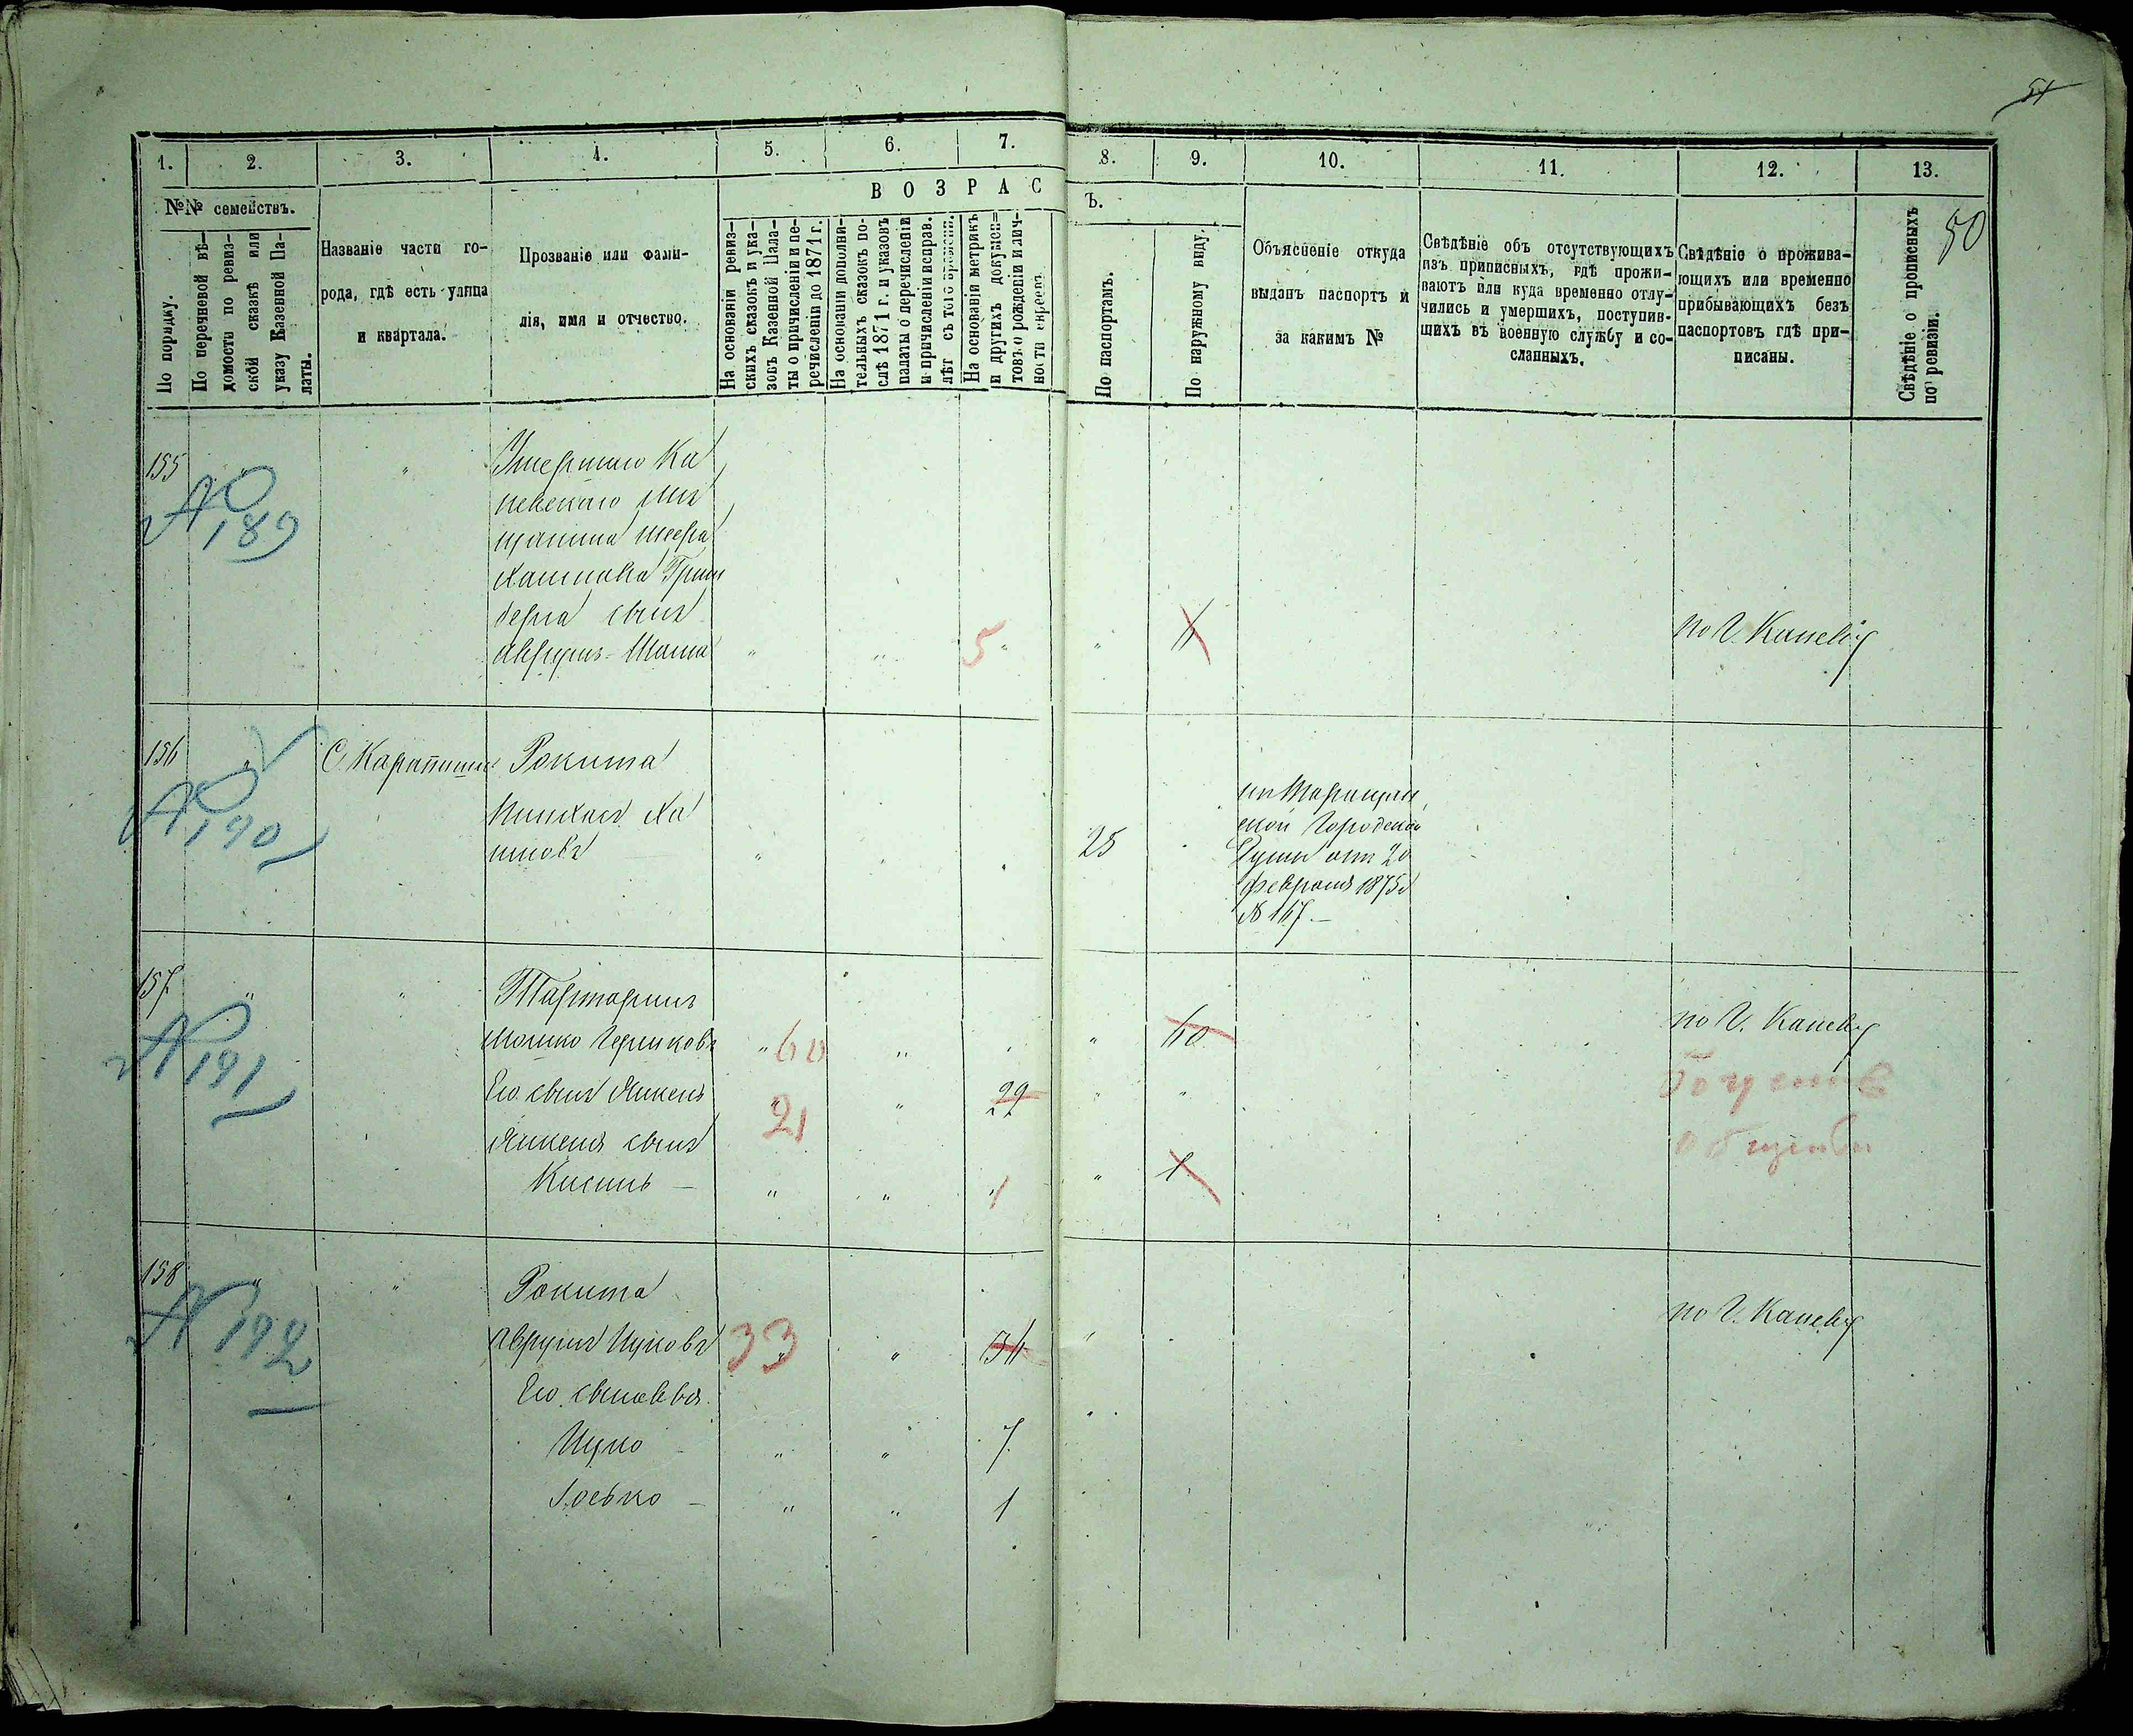 51
50
1. 2. 3. 4. 5. 6. 7. 8. 9. 10. 11. 12. 13.
№№ семействъ.
По порядку.
По перечневой вѣ-
домости по ревиз-
ской сказкѣ или
указу Казенной Па-
латы.
Названіе части го-
рода, гдѣ есть улица
и квартала.
Прозваніе или фами-
лія, имя и отчество.
ВОЗРАС
Ъ.
На основаніи ревиз-
скихъ сказокъ и ука-
зовъ Казенной Пала-
ты о причисленіи и пе-
речисленіи до 1871 г.
На основаніи дополни-
тельныхъ сказокъ по-
слѣ 1871 г. и указовъ
палаты о перечисленіи
и причисленіи исправ.
лѣт съ того времени.
На основаніи метрикъ
и другихъ докумен=
товъ о рожденіи и лич-
ности евреевъ
По паспортамъ.
По наружному виду.
Объясненіе откуда
выданъ паспортъ и
за какимъ №
Свѣдѣніе объ отсутствующихъ
изъ приписныхъ, гдѣ прожи-
ваютъ или куда временно отлу-
чились и умершихъ, поступив-
шихъ въ военную службу и со-
сланныхъ.
Свѣдѣніе о прожива-
ющихъ или временно
прибывающихъ безъ
паспортовъ гдѣ при-
писаны.
Свѣдѣніе о прописныхъ
по ревизіи.
155 " Умершаго Ка
№ 189
невскаго мѣ
щанина
Грин
берга сынъ
Аврумъ - " " 5 " " по Г. Каневу
156 " С. Карапиши Рокита
№ 190
Пинхасъ Ха
имовъ " " 25
изъ Таращан
ской Городской
Думы отъ 20
февраля 1875 г
№ 167. —
157 " " по Г. Каневу
№ 191
Мошко Гершковъ " 60 " " 60
Его сынъ 21 " 29 " "
сынъ
" " 1 "
158 " " Рокита по Г. Каневу
№ 192
Аврумъ Ицковъ 33 " "
Его сыновья
Ицко " " 7
Іосько — " " 1